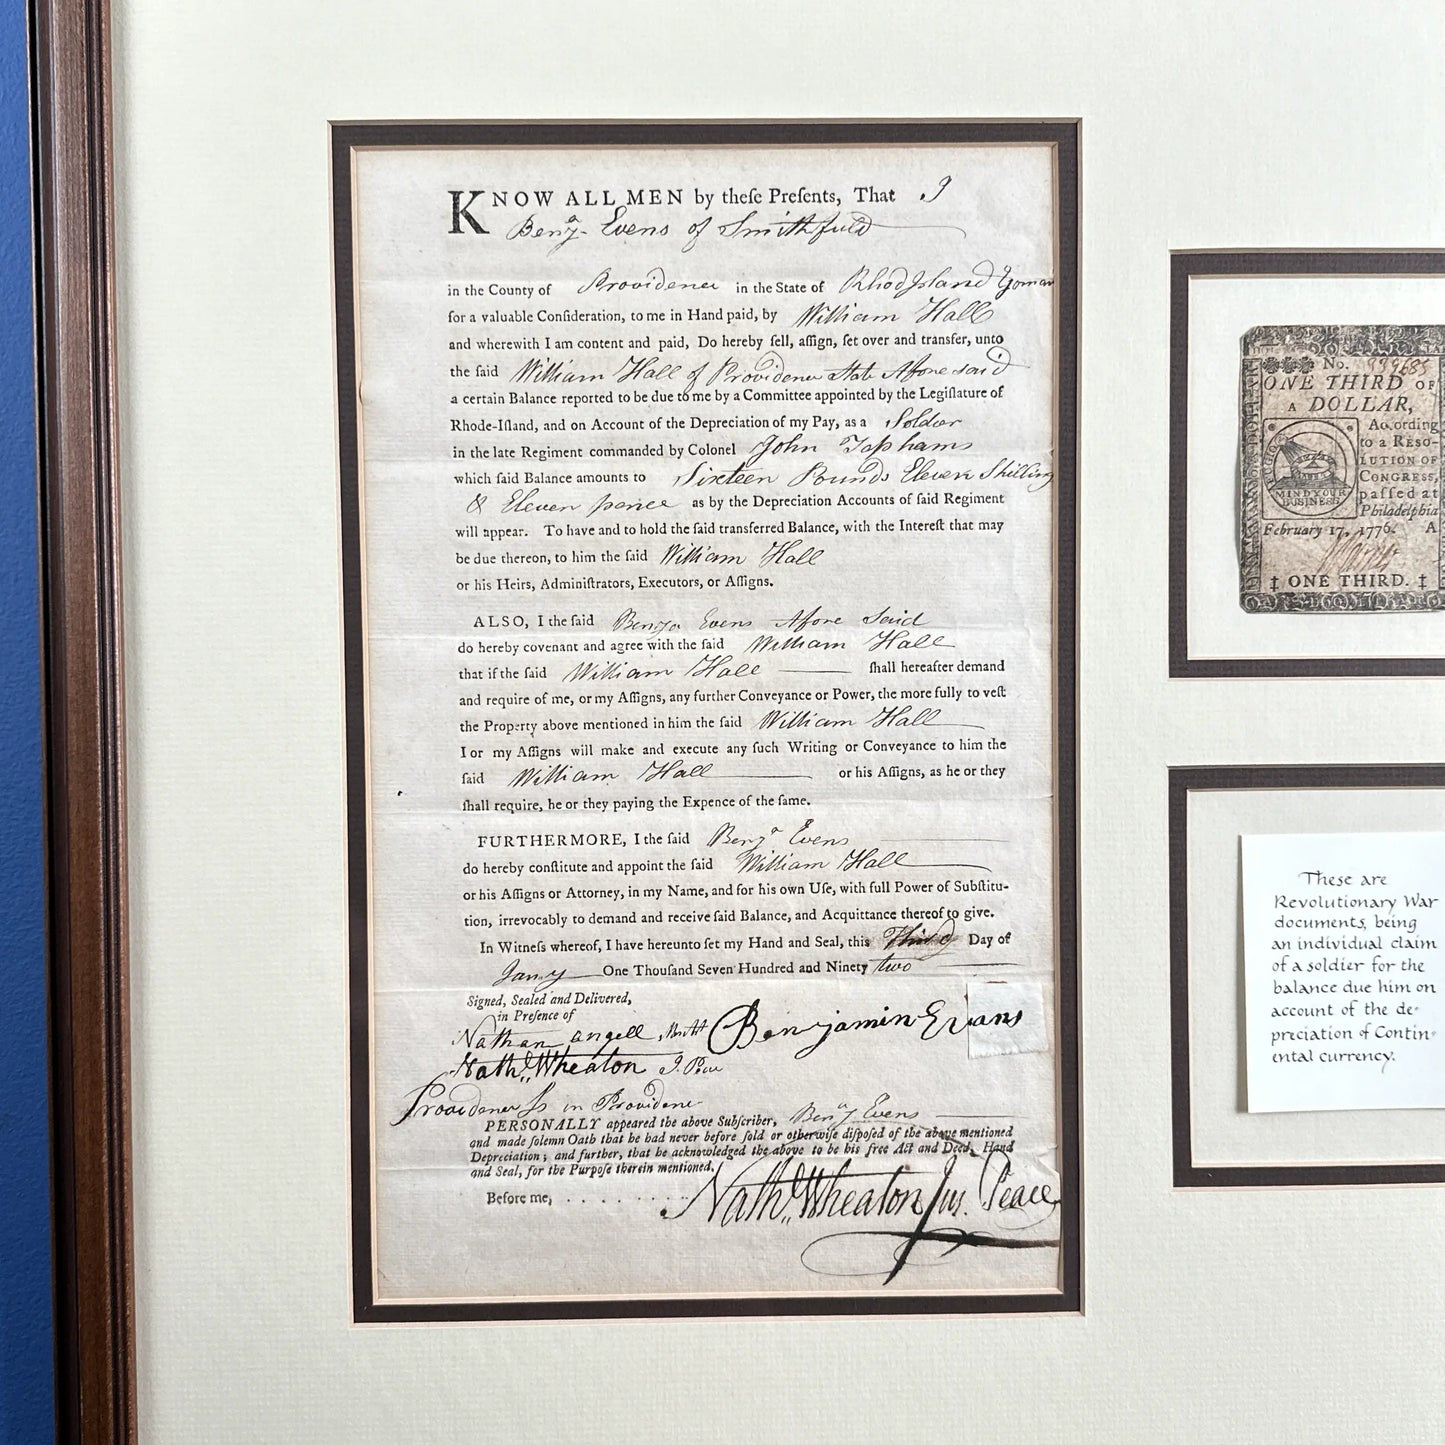 KNOW ALL MEN by theſe Preſents, That I
Benjª Evens of Smithfield
in the County of Providence in the State of Rhod Island Yoman
for a valuable Conſideration, to me in Hand paid, by William Hall
and wherewith I am content and paid, Do hereby ſell, aſſign, ſet over and transfer, unto
the ſaid William Hall of Providence State Afore said
a certain Balance reported to be due to me by a Committee appointed by the Legiſlature of
Rhode-Iſland, and on Account of the Depreciation of my Pay, as a Soldier
in the late Regiment commanded by Colonel John Tophams
which ſaid Balance amounts to Sixteen Pounds Eleven Shilling
& Eleven pence as by the Depreciation Accounts of ſaid Regiment
will appear. To have and to hold the ſaid transferred Balance, with the Intereſt that may
be due thereon, to him the ſaid William Hall
or his Heirs, Adminiſtrators, Executors, or Aſſigns.
ALSO, I the ſaid Benja Evens Afore Said
do hereby covenant and agree with the ſaid William Hall
that if the ſaid William Hall ſhall hereafter demand
and require of me, or my Aſſigns, any further Conveyance or Power, the more fully to veſt
the Property above mentioned in him the ſaid William Hall
I or my Aſſigns will make and execute any ſuch Writing or Conveyance to him the
ſaid William Hall or his Aſſigns, as he or they
ſhall require, he or they paying the Expence of the ſame.
FURTHERMORE, I the ſaid Benjª Evens
do hereby conſtitute and appoint the ſaid William Hall
or his Aſſigns or Attorney, in my Name, and for his own Uſe, with full Power of Subſtitu-
tion, irrevocably to demand and receive ſaid Balance, and Acquittance thereof to give.
In Witneſs whereof, I have hereunto ſet my Hand and Seal, this Third Day of
Jany One Thouſand Seven Hundred and Ninety two
Signed, Sealed and Delivered,
in Preſence of
Nathan angell Benjamin Evans
Nathl. Wheaton J. Peace
Providence Ss in Providence
PERSONALLY appeared the above Subſcriber, Benjª Evens
and made ſolemn Oath that he had never before ſold or otherwiſe diſpoſed of the above mentioned
Depreciation; and further, that he acknowledged the above to be his free Act and Deed, Hand
and Seal, for the Purpoſe therein mentioned.
Before me, . . . . . . . . Nathl. Wheaton Jus. Peace
No.
ONE THIRD OF
A DOLLAR,
According
to a RESO-
LUTION OF
CONGRESS,
paſſed at
Philadelphia
February 17, 1776. A
FUGIO
MIND YOUR
BUSINESS
‡ ONE THIRD. ‡
These are
Revolutionary War
documents, being
an individual claim
of a soldier for the
balance due him on
account of the de-
preciation of Contin-
ental currency.